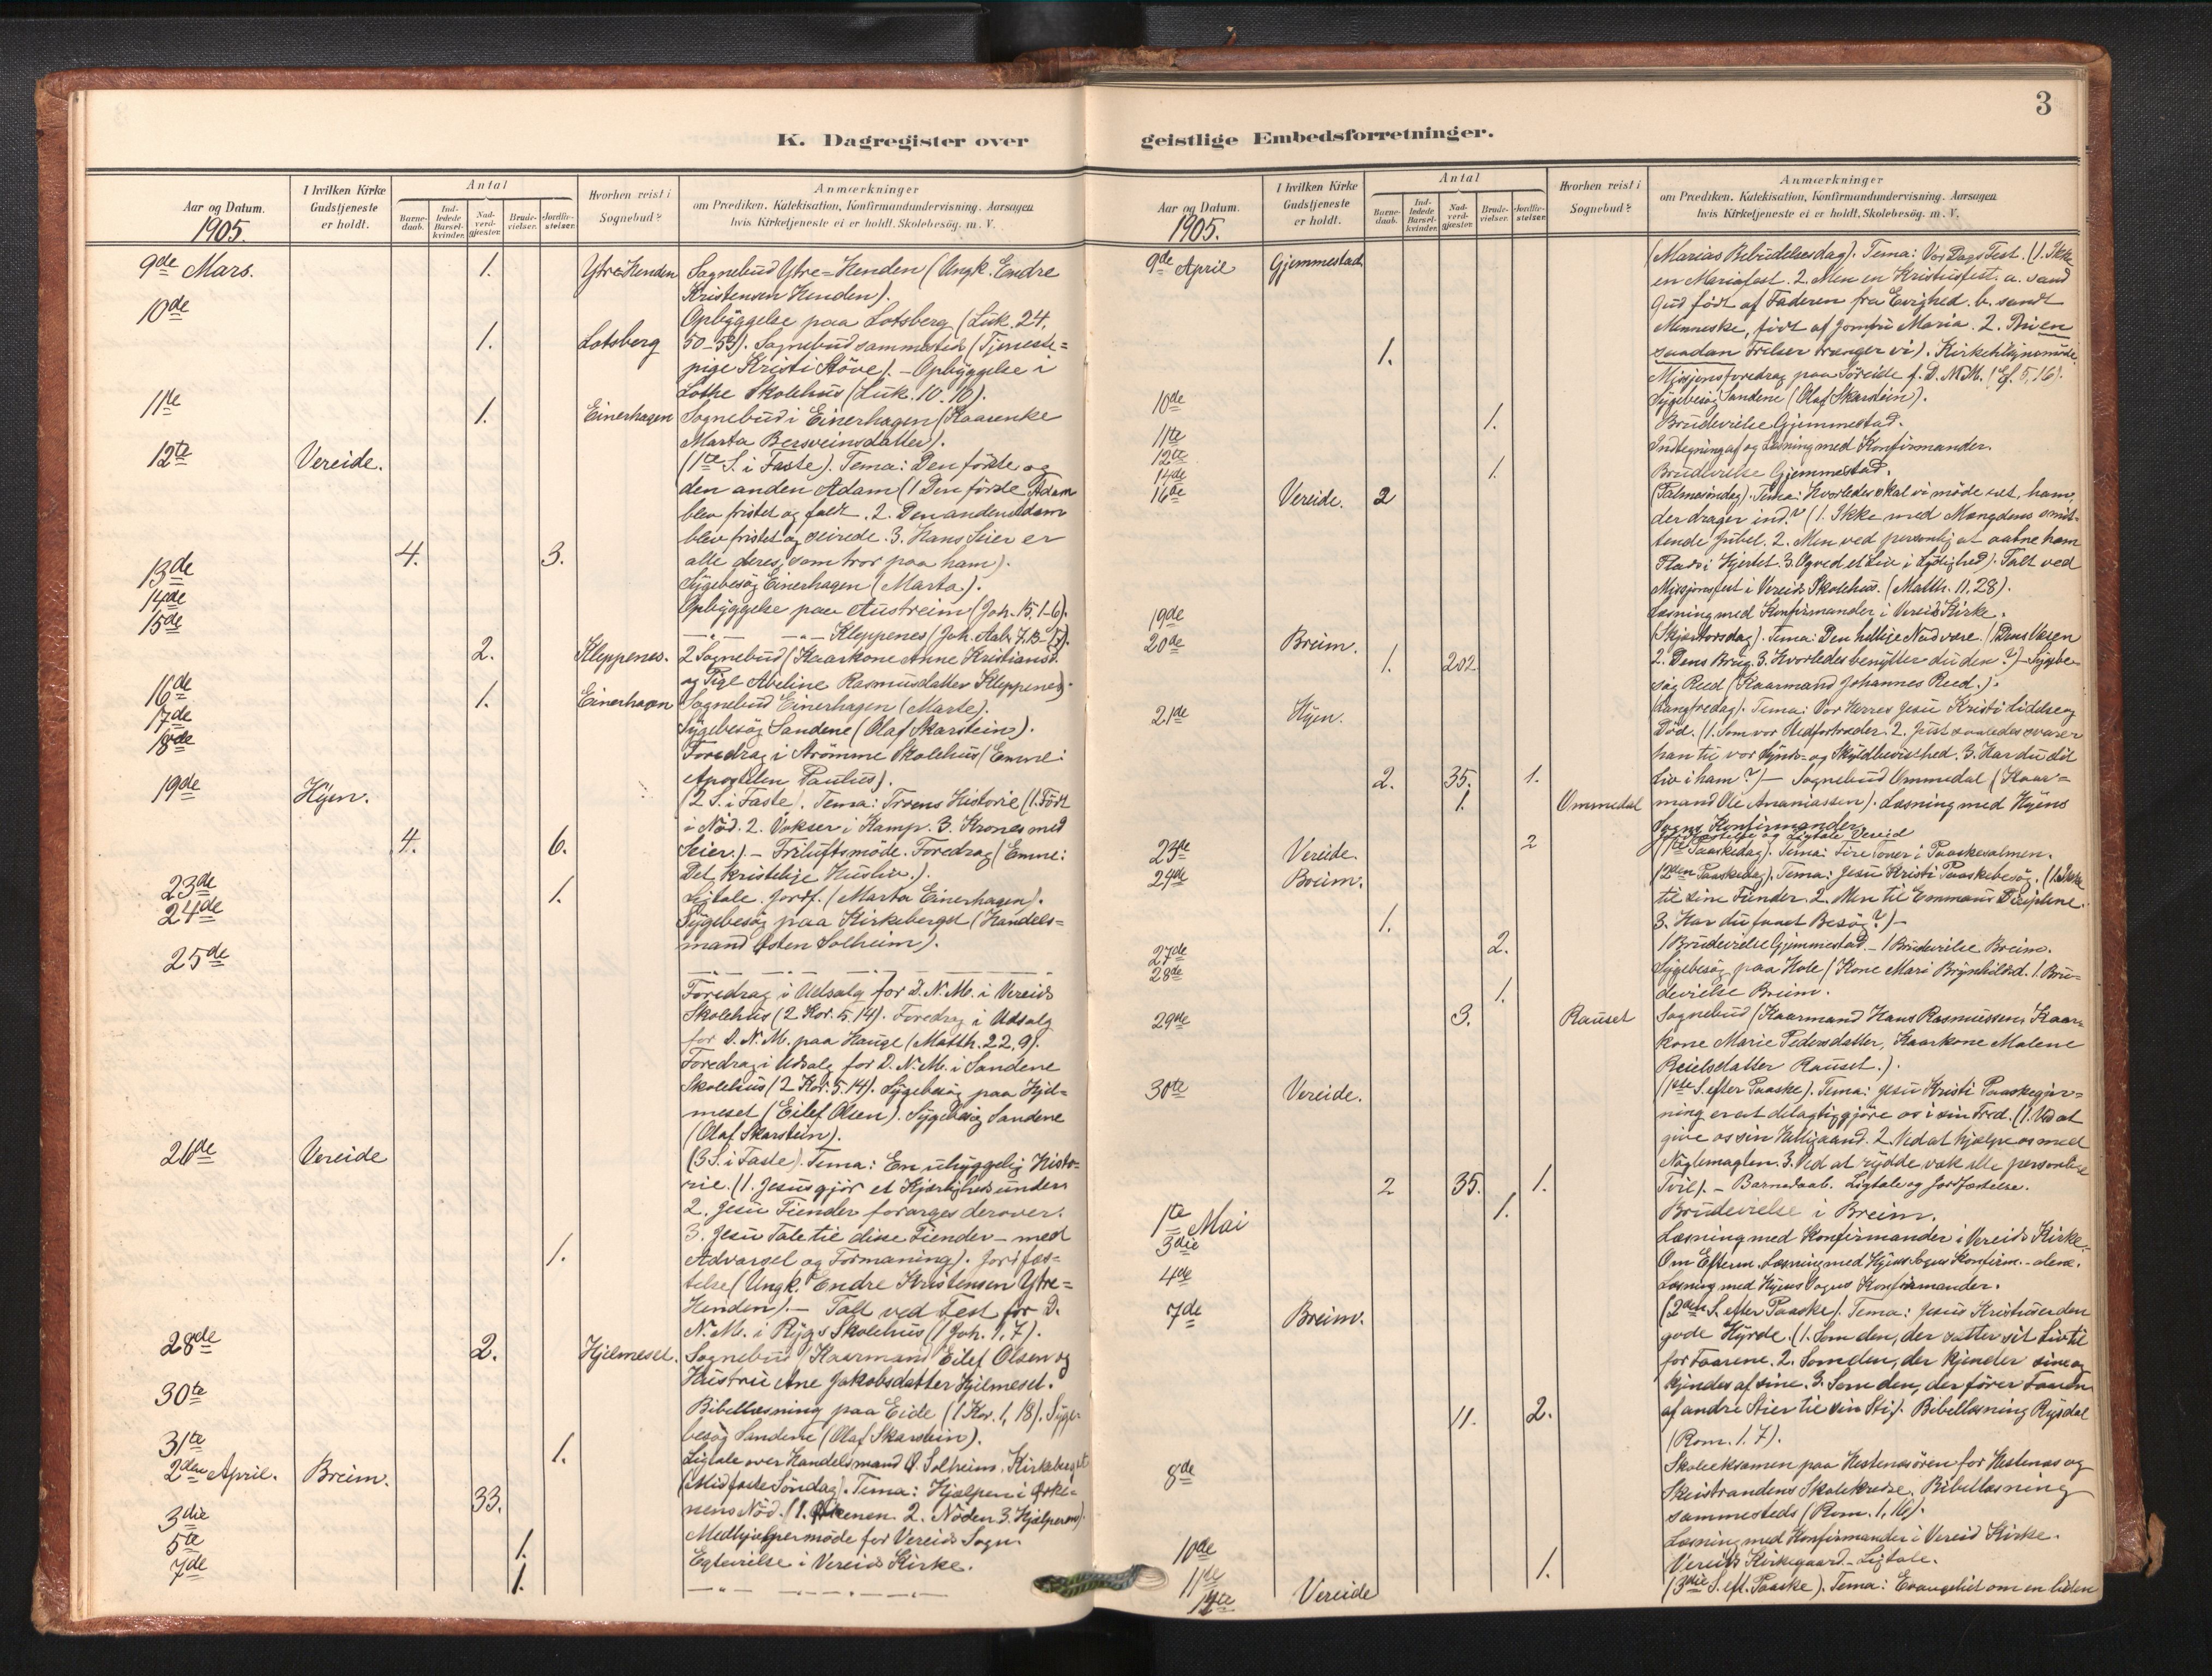 3
K. Dagregister over
geistlige Embedsforretninger.
Aar og Datum.
1905.
I hvilken Kirke Gudstjeneste er holdt.
Antal
Barne-daab.
Ind-ledede Barsel-kvinder.
Nad-verd-gjæster.
Brude-vielser.
Jordfæ-stelser.
Hvorhen reist i Sognebud?
Anmærkninger
om Prædiken. Katekisation, Konfirmandundervisning. Aarsagen
hvis Kirketjeneste ei er holdt. Skolebesög. m. V.
9de Mars. 1. Ytre-Henden Sognebud Ytre-Henden (Ungk. Endre
Kristensen Henden).
10de Opbyggelse paa Lotsberg (Luk. 24,
1. Lotsberg 50-53). Sognebud sammested (Tjeneste-
pige Kristi Höve). - Opbyggelse i
Lothe Skolehus (Luk. 10.
11te 1. Einerhagen Sognebud i Einerhagen (Kaarenke
Marta Bersveinsdatter).
12te Vereide. (1te S. i Faste). Tema: Den förste og
den anden Adam (1 Den förste Adam
blev fristet og faldt. 2. Den anden Adam
blev fristet og seirede. 3. Hans Seier er
4. 3. alle deres, som tror paa ham).
13de Sygebesög Einerhagen (Marta).
14de Opbyggelse paa Austreim (Joh. 15, 1-6).
15de — " — — " — Kleppenes (Joh. Aab. 7, 13-17).
2. Kleppenes. 2 Sognebud (Kaarkone Anne Kristiansd.
og Pige Abeline Rasmusdatter Kleppenes).
16de 1. Einerhagen Sognebud Einerhagen (Marte).
17de Sygebesög Sandene (Olaf Skarstein).
18de Foredrag i Strömme Skolehus (Emne:
Apostelen Paulus).
19de Hyen. (2 S. i Faste). Tema: Troens Historie (1. Födt
i Nöd. 2. Vokser i Kamp. 3. Krones med
4. 6. Seier.) - Friluftsmöde. Foredrag (Emne:
Det kristelige Husliv.).
23de 1. Ligtale. Jordf. (Marta Einerhagen).
24de Sygebesög paa Kirkeberget (Handels-
mand Östen Solheim).
25de — " — — " —
Foredrag i Udsalg for D. N. M. i Vereids
Skolehus (2 Kor. 5. 14). Foredrag i Udsalg
for D. N. M. paa Hauge (Matth. 22, 9).
Foredrag i Udsalg for D. N. M. i Sandene
Skolehus (2 Kor. 5. 14). Sygebesög paa Hjel-
meset (Eilef Olsen). Sygebesög Sandene
(Olaf Skarstein).
26de Vereide (3 S. i Faste). Tema: En uhyggelig Histo-
rie. (1. Jesus gjör et Kjærlighedsunder.
2. Jesu Fiender forarges derover.
3. Jesu Tale til disse Fiender - med
1. Advarsel og Formaning). Jordfæs-
telse (Ungk. Endre Kristensen Ytre-
Henden). - Talt ved Fest for D.
N. M. i Rygs Skolehus (1 Joh. 1, 7).
28de 2. Hjelmeset. Sognebud (Kaarmand Eilef Olsen og
Hustru Ane Jakobsdatter Hjelmeset.
30te Bibellæsning paa Eide (1 Kor. 1, 18). Syge-
besög Sandene (Olaf Skarstein).
31te 1. Ligtale over Handelsmand Ö. Solheim. Kirkeberget
2den April. Breim. (Midfaste Söndag). Tema: Hjælpen i Örke-
33. nens Nöd. (1. Örkenen. 2. Nöden 3. Hjælperen).
3die Medhjælpermöde for Vereids Sogn.
5te 1. Egtevielse i Vereids Kirke.
7de 1. — " — — " — " — " —
Aar og Datum.
1905.
I hvilken Kirke Gudstjeneste er holdt.
Antal
Barne-daab.
Ind-ledede Barsel-kvinder.
Nad-verd-gjæster.
Brude-vielser.
Jordfæ-stelser.
Hvorhen reist i Sognebud?
Anmærkninger
om Prædiken. Katekisation, Konfirmandundervisning. Aarsagen
hvis Kirketjeneste ei er holdt. Skolebesög. m. V.
9de April Gjemmestad (Marias Bebudelsesdag). Tema: Vor Dags Fest. (1. Ikke
en Mariafest. 2. Men en Kristusfest. a. sand
Gud födt af Faderen fra Evighed. b. sandt
Menneske, födt af Jomfru Maria. 2. Thi en
1. saadan Frelser trænger vi). Kirketilsynsmöde.
Missionsforedrag paa Söreide f. D. N. M. (Ef. 5, 16).
10de Sygebesög Sandene (Olaf Skarstein).
1. Brudevielse Gjemmestad.
11te Indtegning af og Læsning med Konfirmander.
12te
14de 1. Brudevielse Gjemmestad.
16de Vereide. 2 (Palmesöndag). Tema: Hvorledes skal vi möde ham,
der drager ind? (1. Ikke med Mængdens smit-
tende Jubel. 2. Men ved personlig at aabne ham
Plads i Hjertet. 3. Og ved et Liv i Lydighed). Talt ved
Missionsfest i Vereids Skolehus. (Matth. 11, 28).
19de Læsning med Konfirmander i Vereids Kirke.
20de Breim. (Skjærtorsdag). Tema: Den hellige Nadvere. (1 Dens Væsen
1. 202 2. Dens Brug. 3. Hvorledes benytter du den?) - Sygebe-
sög Reed (Kaarmand Johannes Reed.).
21de Hyen. (Langfredag). Tema: Vor Herres Jesu Kristi Lidelse og
Död. (1. Som vor Stedfortræder. 2. Just saaledes svarer
han til vor Synds- og Skyldbevisthed. 3. Har du dit
2. 35. 1. Liv i ham?) - Sognebud Ommedal (Kaar-
1. Ommedal mand Ole Ananiassen). Læsning med Hyens
Sogns Konfirmander.
2 Jordfæstelse og Ligtale Vereid
23de Vereide. (1ste Paaskedag). Tema: Fire Toner i Paaskesalmen.
24de Breim. (2den Paaskedag). Tema: Jesu Kristi Paaskebesög. (1. Ikke
til sine Fiender. 2. Men til Emmaus Disiplene.
1. 3. Har du faaet Besög?) -
27de 2. 1 Brudevielse Gjemmestad. - 1 Brudevielse Breim.
28de Sygebesög paa Hole (Kone Mari Brynhildsd. 1. Bru-
1. devielse Breim.
29de 3. Rauset Sognebud (Kaarmand Hans Rasmussen, Kaar-
kone Marie Pedersdatter, Kaarkone Malene
Reielsdatter Rauset.).
30te Vereide. (1ste S. efter Paaske). Tema: Jesu Kristi Paaskegjer-
ning er at delagtiggjöre os i sin Fred. (1. Ved at
give os sin Helligaand. 2. Ved at hjælpe os med
Nöglemagten. 3. Ved at rydde væk alle personlige
2 35. 1. Tvil). - Barnedaab. Ligtale og Jordfæstelse.
1ste Mai 1. Brudevielse i Breim.
3die Læsning med Konfirmander i Vereids Kirke.
Om Efterm. Læsning med Hyens Sogns Konfirm. - alene.
4de Læsning med Hyens Sogns Konfirmander.
7de Breim. (2den S. efter Paaske). Tema: Jesus Kristus er den
gode Hyrde. (1. Som den, der sætter sit Liv til
for Faarene. 2. Som den, der kjender sine og
kjendes af sine. 3. Som den, der förer Faaren
11. 2. af andre Stier til sin Sti). Bibellæsning Rysdal
(Rom. 1. 7).
8de Skoleeksamen paa Hestenesören for Hestenes og
Skeistrandens Skolekredse. Bibellæsning
sammesteds (Rom. 1, 16).
10de Læsning med Konfirmander i Vereid Kirke.
11te 1. Vereids Kirkegaard - Ligtale.
14de Vereide (3die S. eft. Paaske). Tema: Evangeliet om en liden